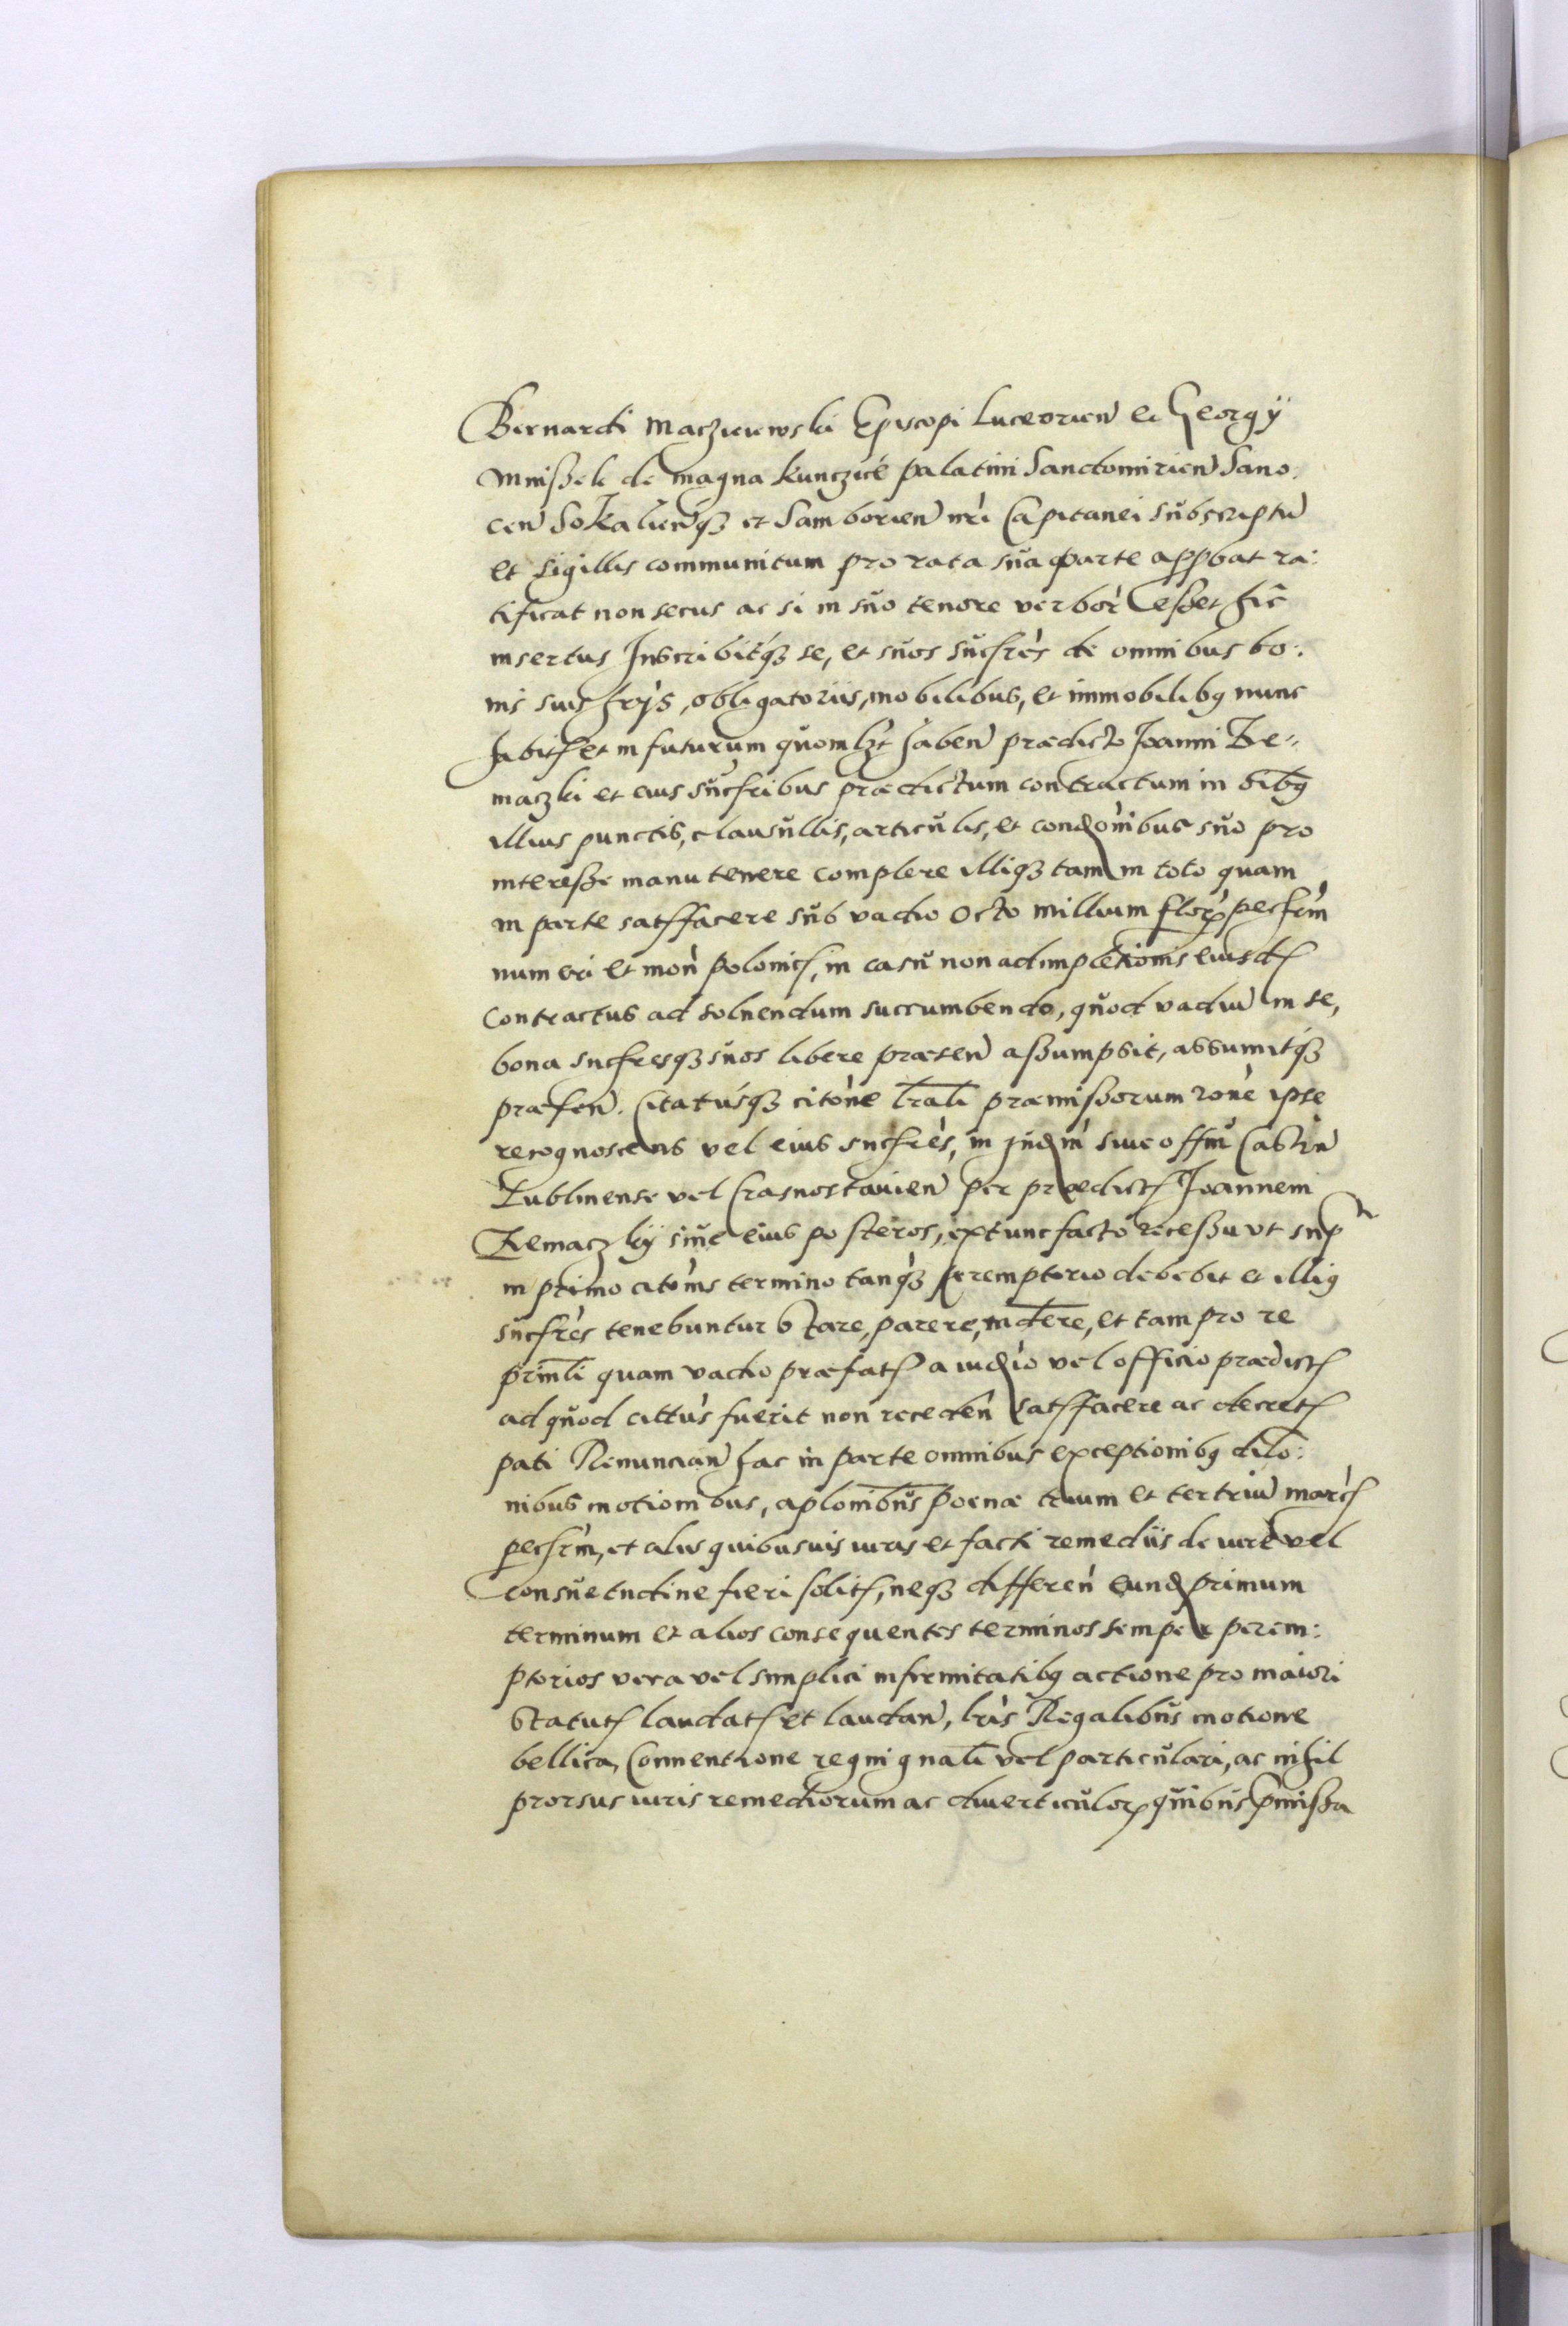 Bernardi Maczieiewski Episcopi Luceorien̄ et Georgÿ
Mnißek de Magna Kunczicé palatini Sandomirien̄ Sano:
cen̄ Sokalien̄qꝫ et Samborien̄ nr̀i Capitanei sŭbscriptū
et sigillis communitum pro rata sŭa parte appbat ra:
tificat non secus ac si in sŭo tenore verbor̀ eßet hic
insertus Inscribitqꝫ se, et sŭos sŭcfrès de omnibus bo:
nis suis hrÿs, obligatoriis, mobilibus, et immobilibꝯ nunc
habitꝭ et in futurum quomlꝫt haben̄ prædicto Joanni Ze=
maczki et eius sŭcfribus prædictum contractum in oībꝯ
illius punctis, clausŭllis, articŭlis, et condòn̄ibus sŭo pro
intereße manu tenere complere illiqꝫ tam in toto quam
in parte satꝭfacere sŭb vadio octo millium florꝝ pecfrìm
numeri et mon̄ polonicꝭ, in casŭ non adimpletionis eiusdꝭ
contractus ad soluendum succumbendo, quŏd vadiū in se,
bona sucfresqꝫ sŭos libere præsen̄ aßumpsit, assumitqꝫ
præsen̄. Citatúsqꝫ citòne lr̄ali præmißorum ròne ipse
recognoscens vel eius sucfrès, in judm̀ siue offm̀ Castrn̄
Lublinense vel Crasnostauien̄ per prædictꝭ Joannem
Zemaczkÿ siŭe eius posteros, extunc facto receßu vt sup̄
in primo citòn̄is termino tanqꝫ peremptorio debebit et illiꝯ
sŭcfrès tenebuntur stare, parere, rn̄dere, et tam pro re
prīnli quam vadio præfatꝭ a iudìo vel officio prædictꝭ
ad quŏd cittùs fuerit non receden̄ satꝭfacere ac decretꝭ
pati Renuncian̄ hac in parte omnibus exceptionibꝯ dilo:
nibus motionibus, aplon̄ibŭs pœnæ trium et tertriū marcꝭ
pecfrìm, et aliis quibusuis iuris et facti remediis de iurè vel
consŭetudine fieri solitꝭ, neqꝫ differen̄ eundꝭ primum
terminum et alios consequentes terminos semper perem:
ptorios vera vel simplici infirmitatibꝯ actione pro maiori
statutꝭ laudatꝭ et laudan̄, lr̀is Regalibŭs motione
bellica, Conuentione regni gnāli vel particŭlari, ac nihil
prorsus iuris remediorum ac diuerticŭlorꝝ quibŭs p̄mißa